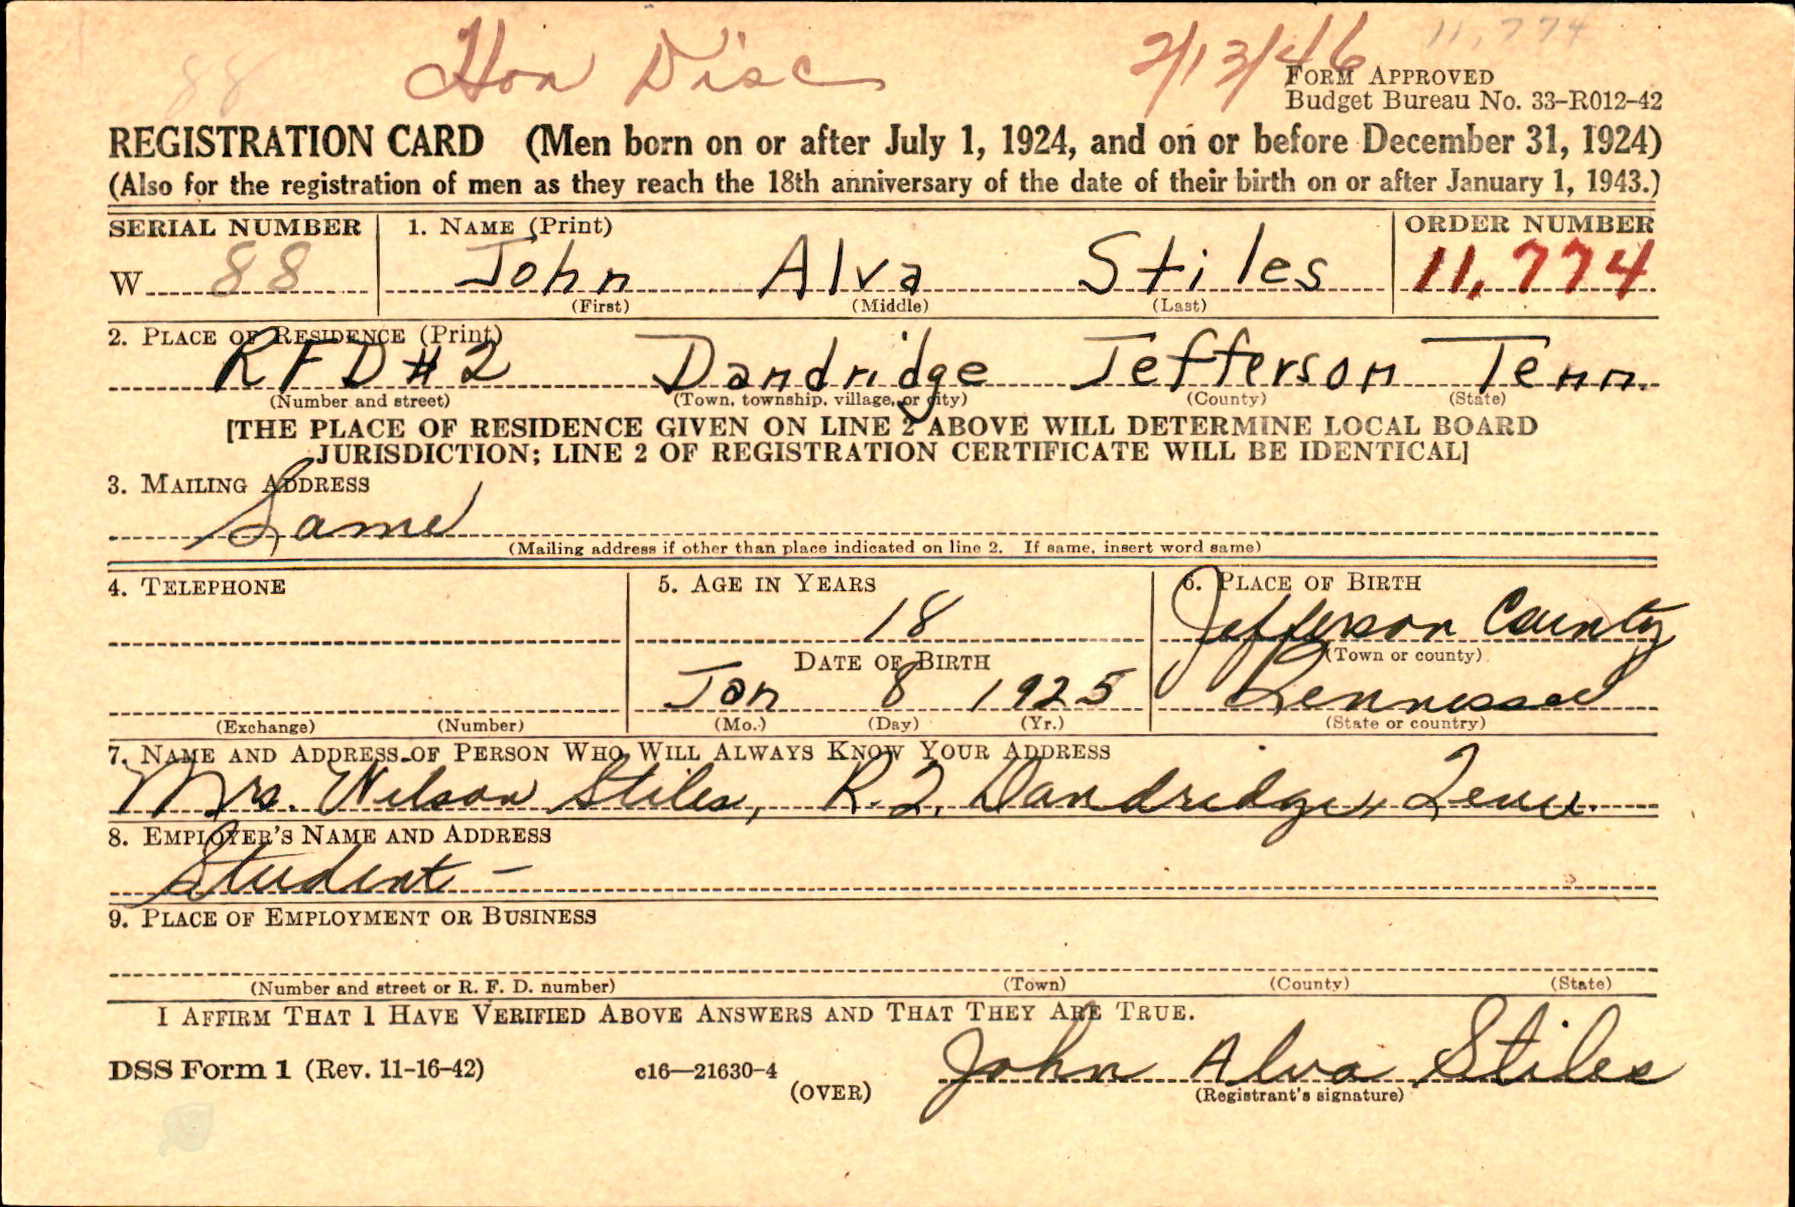 88 Hon Disc 2/13/46 11,774
FORM APPROVED
Budget Bureau No. 33-R012-42
REGISTRATION CARD (Men born on or after July 1, 1924, and on or before December 31, 1924)
(Also for the registration of men as they reach the 18th anniversary of the date of their birth on or after January 1, 1943.)
SERIAL NUMBER 1. NAME (Print) ORDER NUMBER
W 88 John Alva Stiles 11,774
(First) (Middle) (Last)
2. PLACE OF RESIDENCE (Print)
RFD#2 Dandridge Jefferson Tenn.
(Number and street) (Town, township, village, or city) (County) (State)
[THE PLACE OF RESIDENCE GIVEN ON LINE 2 ABOVE WILL DETERMINE LOCAL BOARD
JURISDICTION; LINE 2 OF REGISTRATION CERTIFICATE WILL BE IDENTICAL]
3. MAILING ADDRESS
Same
(Mailing address if other than place indicated on line 2. If same, insert word same)
4. TELEPHONE 5. AGE IN YEARS 6. PLACE OF BIRTH
18 Jefferson County
DATE OF BIRTH (Town or county)
Jan 8 1925 Tennessee
(Exchange) (Number) (Mo.) (Day) (Yr.) (State or country)
7. NAME AND ADDRESS OF PERSON WHO WILL ALWAYS KNOW YOUR ADDRESS
Mrs. Wilson Stiles, R.2, Dandridge, Tenn.
8. EMPLOYER'S NAME AND ADDRESS
Student -
9. PLACE OF EMPLOYMENT OR BUSINESS
(Number and street or R. F. D. number) (Town) (County) (State)
I AFFIRM THAT I HAVE VERIFIED ABOVE ANSWERS AND THAT THEY ARE TRUE.
DSS Form 1 (Rev. 11-16-42) c16—21630-4 John Alva Stiles
(OVER) (Registrant's signature)